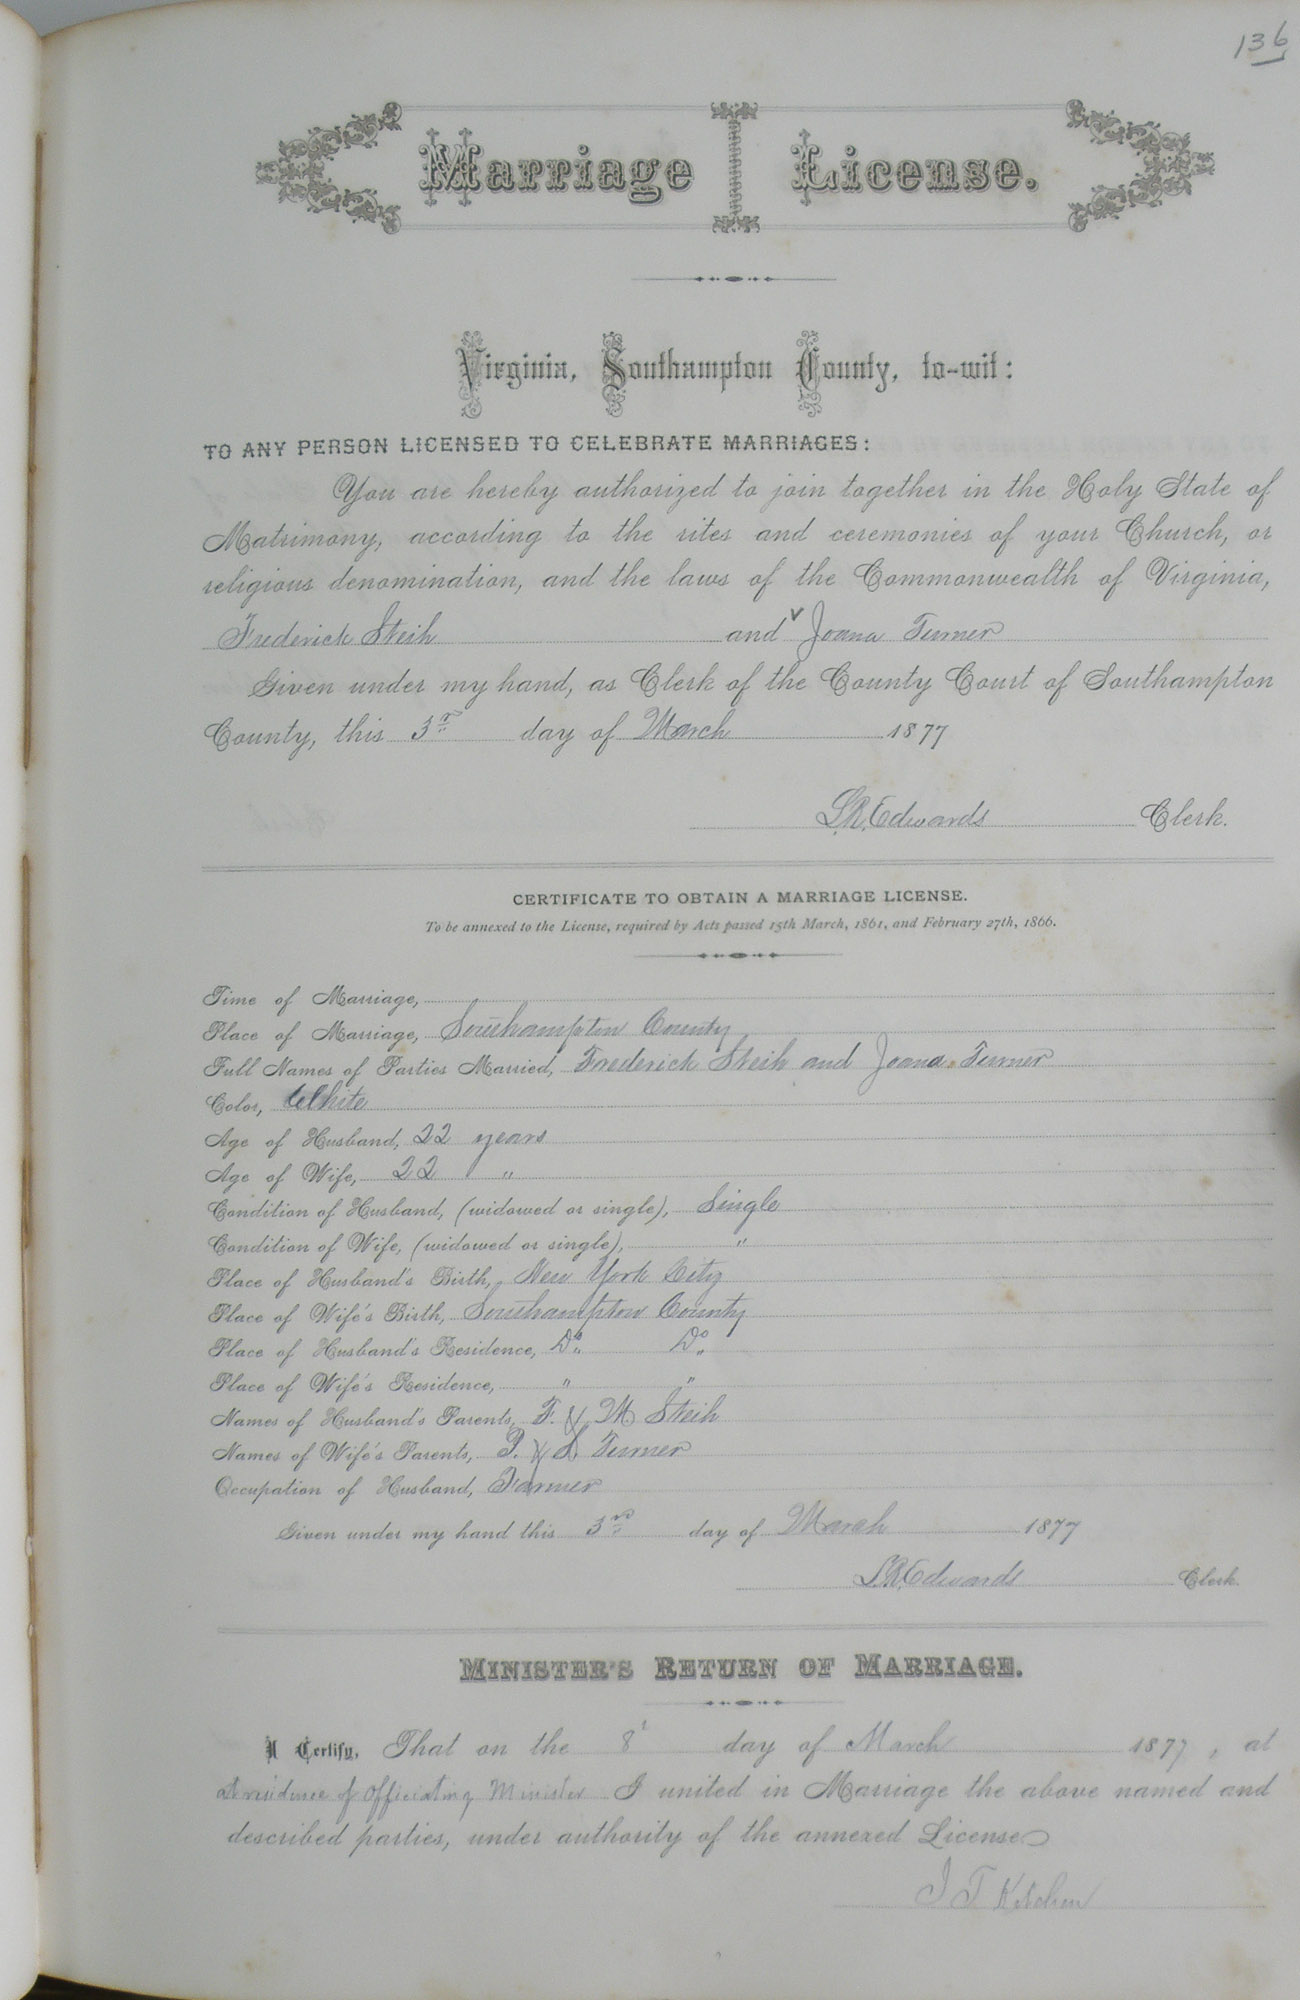 136
Marriage License.
Virginia, Southampton County, to-wit:
TO ANY PERSON LICENSED TO CELEBRATE MARRIAGES:
You are hereby authorized to join together in the Holy State of
Matrimony, according to the rites and ceremonies of your Church, or
religious denomination, and the laws of the Commonwealth of Virginia,
Frederick Steih and Joana Turner
Given under my hand, as Clerk of the County Court of Southampton
County, this 3rd day of March 1877
L.R. Edwards Clerk.
CERTIFICATE TO OBTAIN A MARRIAGE LICENSE.
To be annexed to the License, required by Acts passed 15th March, 1861, and February 27th, 1866.
Time of Marriage,
Place of Marriage, Southampton County
Full Names of Parties Married, Frederick Steih and Joana Turner
Color, White
Age of Husband, 22 years
Age of Wife, 22 "
Condition of Husband, (widowed or single), Single
Condition of Wife, (widowed or single), "
Place of Husband's Birth, New York City
Place of Wife's Birth, Southampton County
Place of Husband's Residence, Do Do
Place of Wife's Residence, " "
Names of Husband's Parents, F. & M Steih
Names of Wife's Parents, & Turner
Occupation of Husband, Farmer
Given under my hand this 3rd day of March 1877
L.R. Edwards Clerk.
MINISTER'S RETURN OF MARRIAGE.
I Certify, That on the 8 day of March 1877, at
residence of Officiating Minister I united in Marriage the above named and
described parties, under authority of the annexed License
J T Kitchen